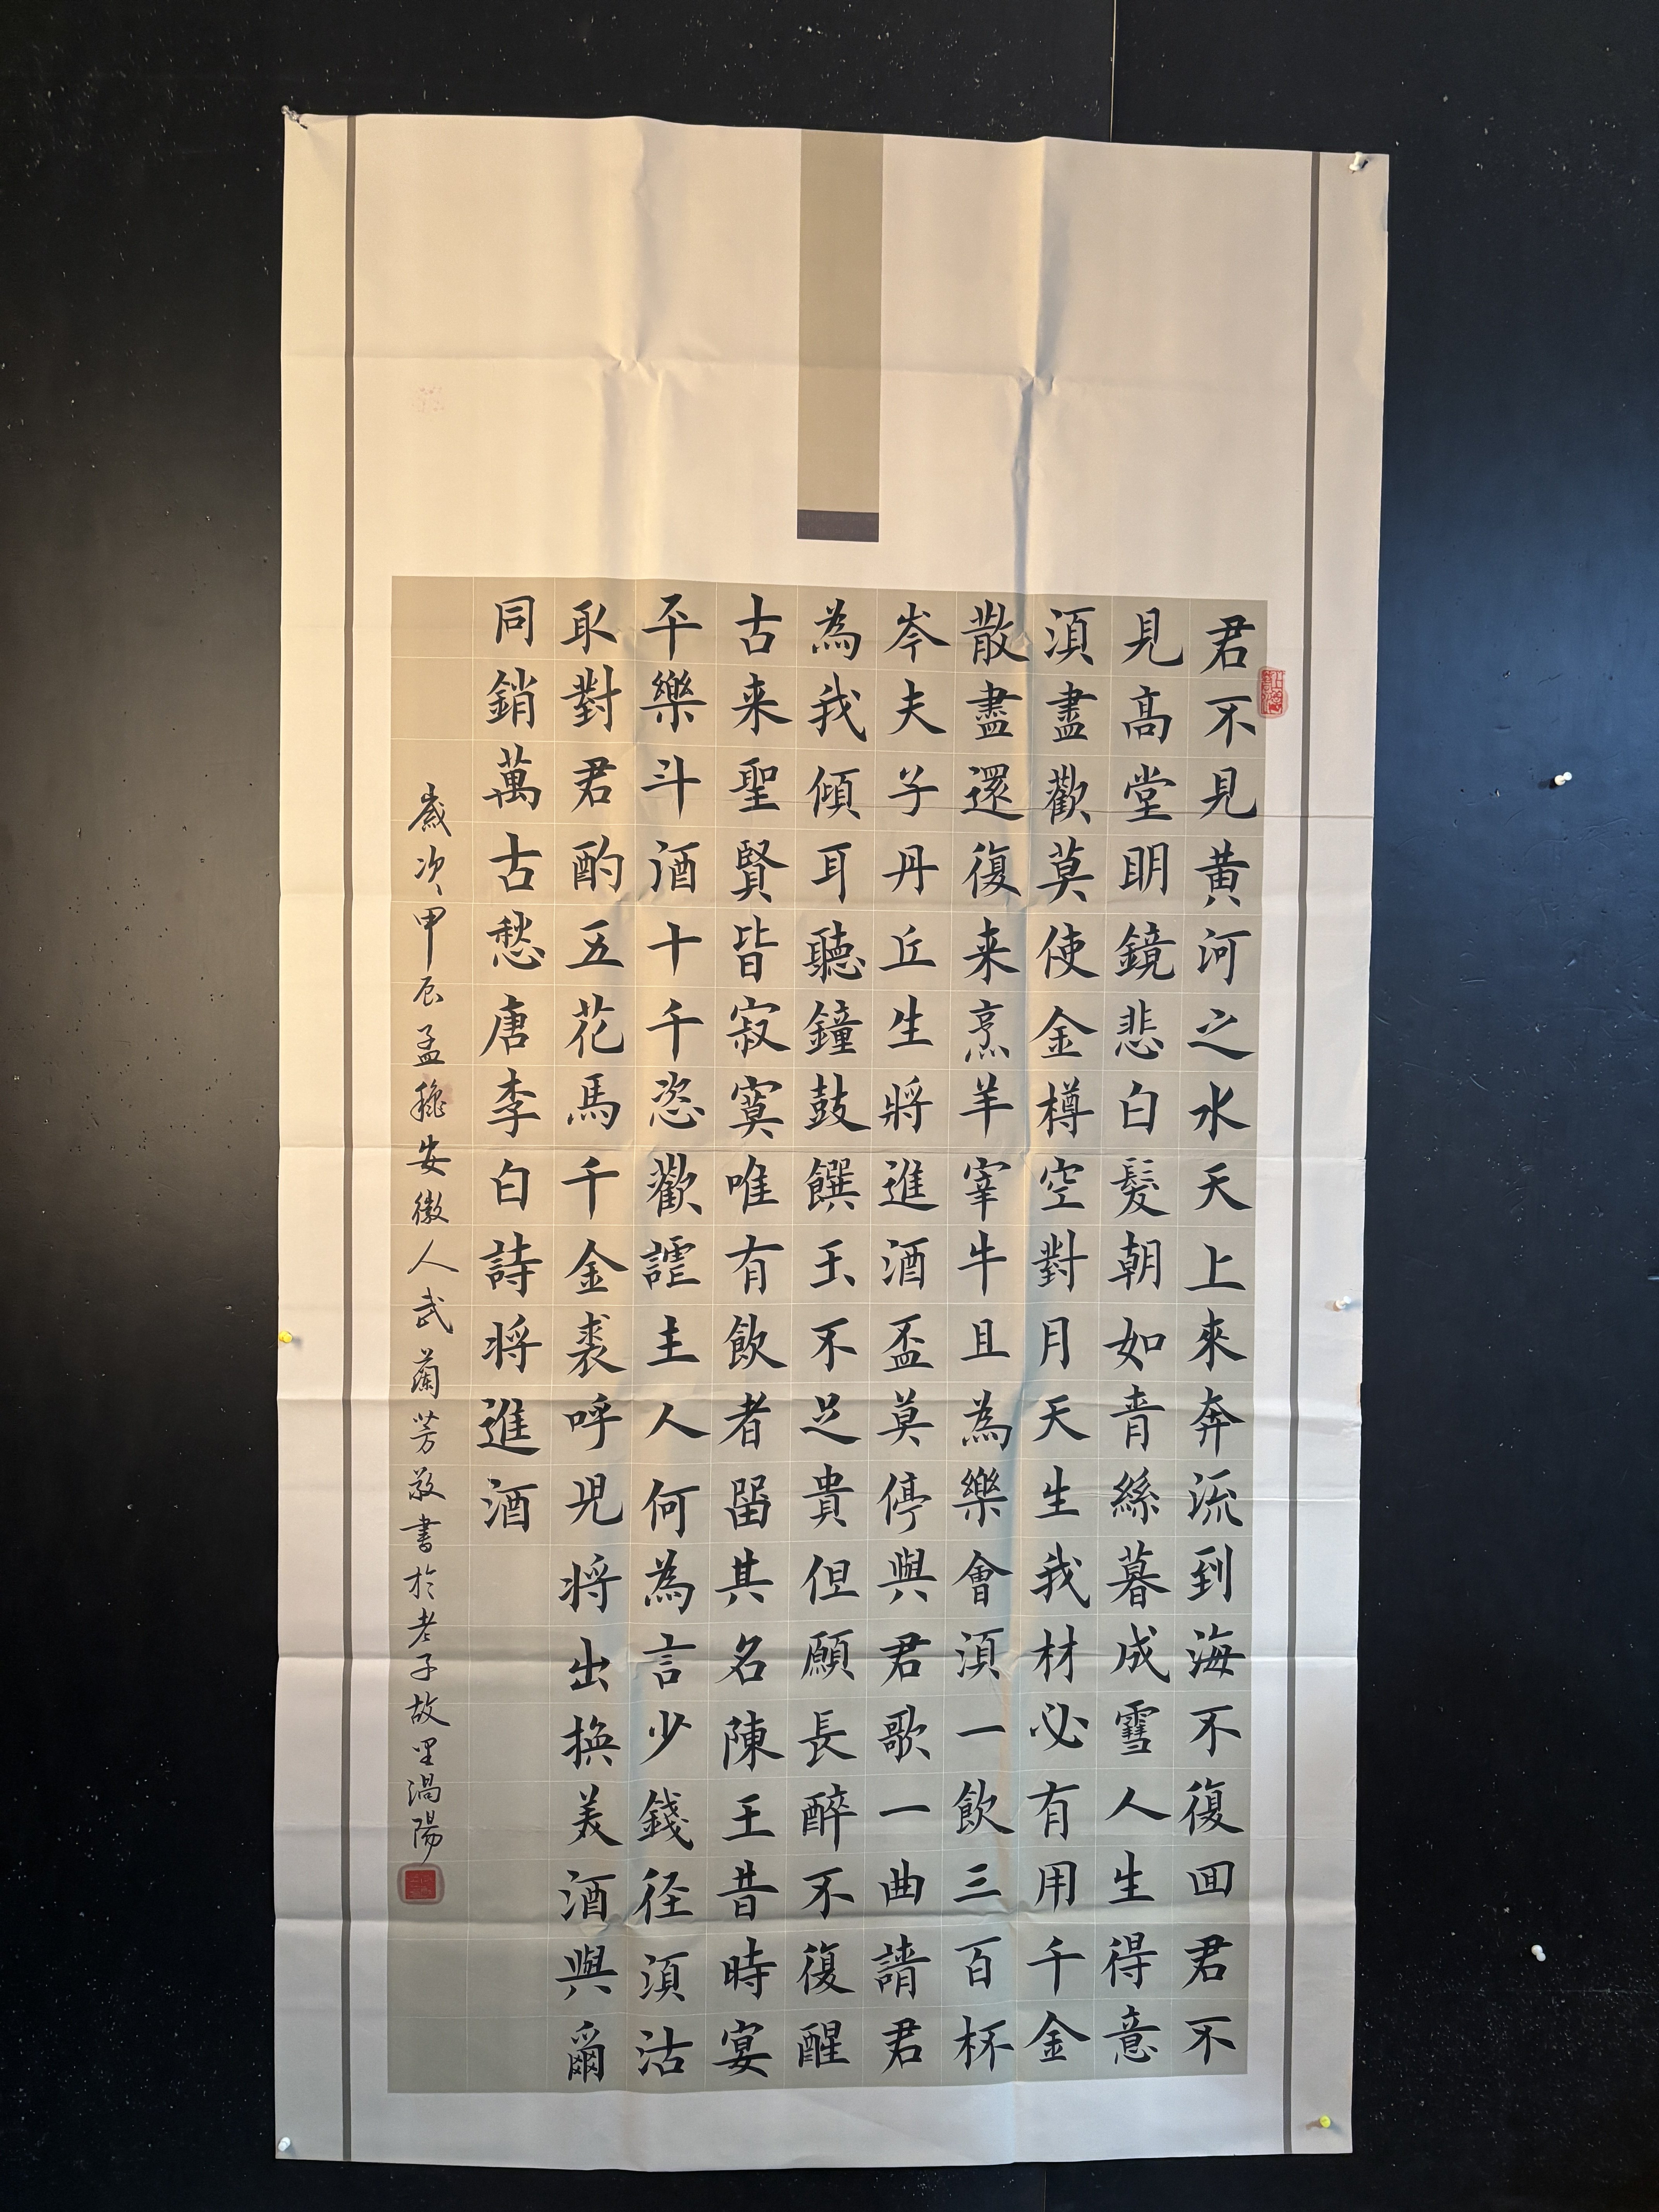 君不見黄河之水天上來奔流到海不復回君不
見高堂明鏡悲白髮朝如青絲暮成雪人生得意
須盡歡莫使金樽空對月天生我材必有用千金
散盡還復来烹羊宰牛且為樂會須一飲三百杯
岑夫子丹丘生將進酒盃莫停與君歌一曲請君
為我傾耳聽鐘鼓饌玉不足貴但願長醉不復醒
古来聖賢皆寂寞唯有飲者留其名陳王昔時宴
平樂斗酒十千恣歡謔主人何為言少錢径須沽
取對君酌五花馬千金裘呼児将出換美酒與爾
同銷萬古愁唐李白詩将進酒
歲次甲辰孟穐安徽人武蘭芳敬書於老子故里渦陽